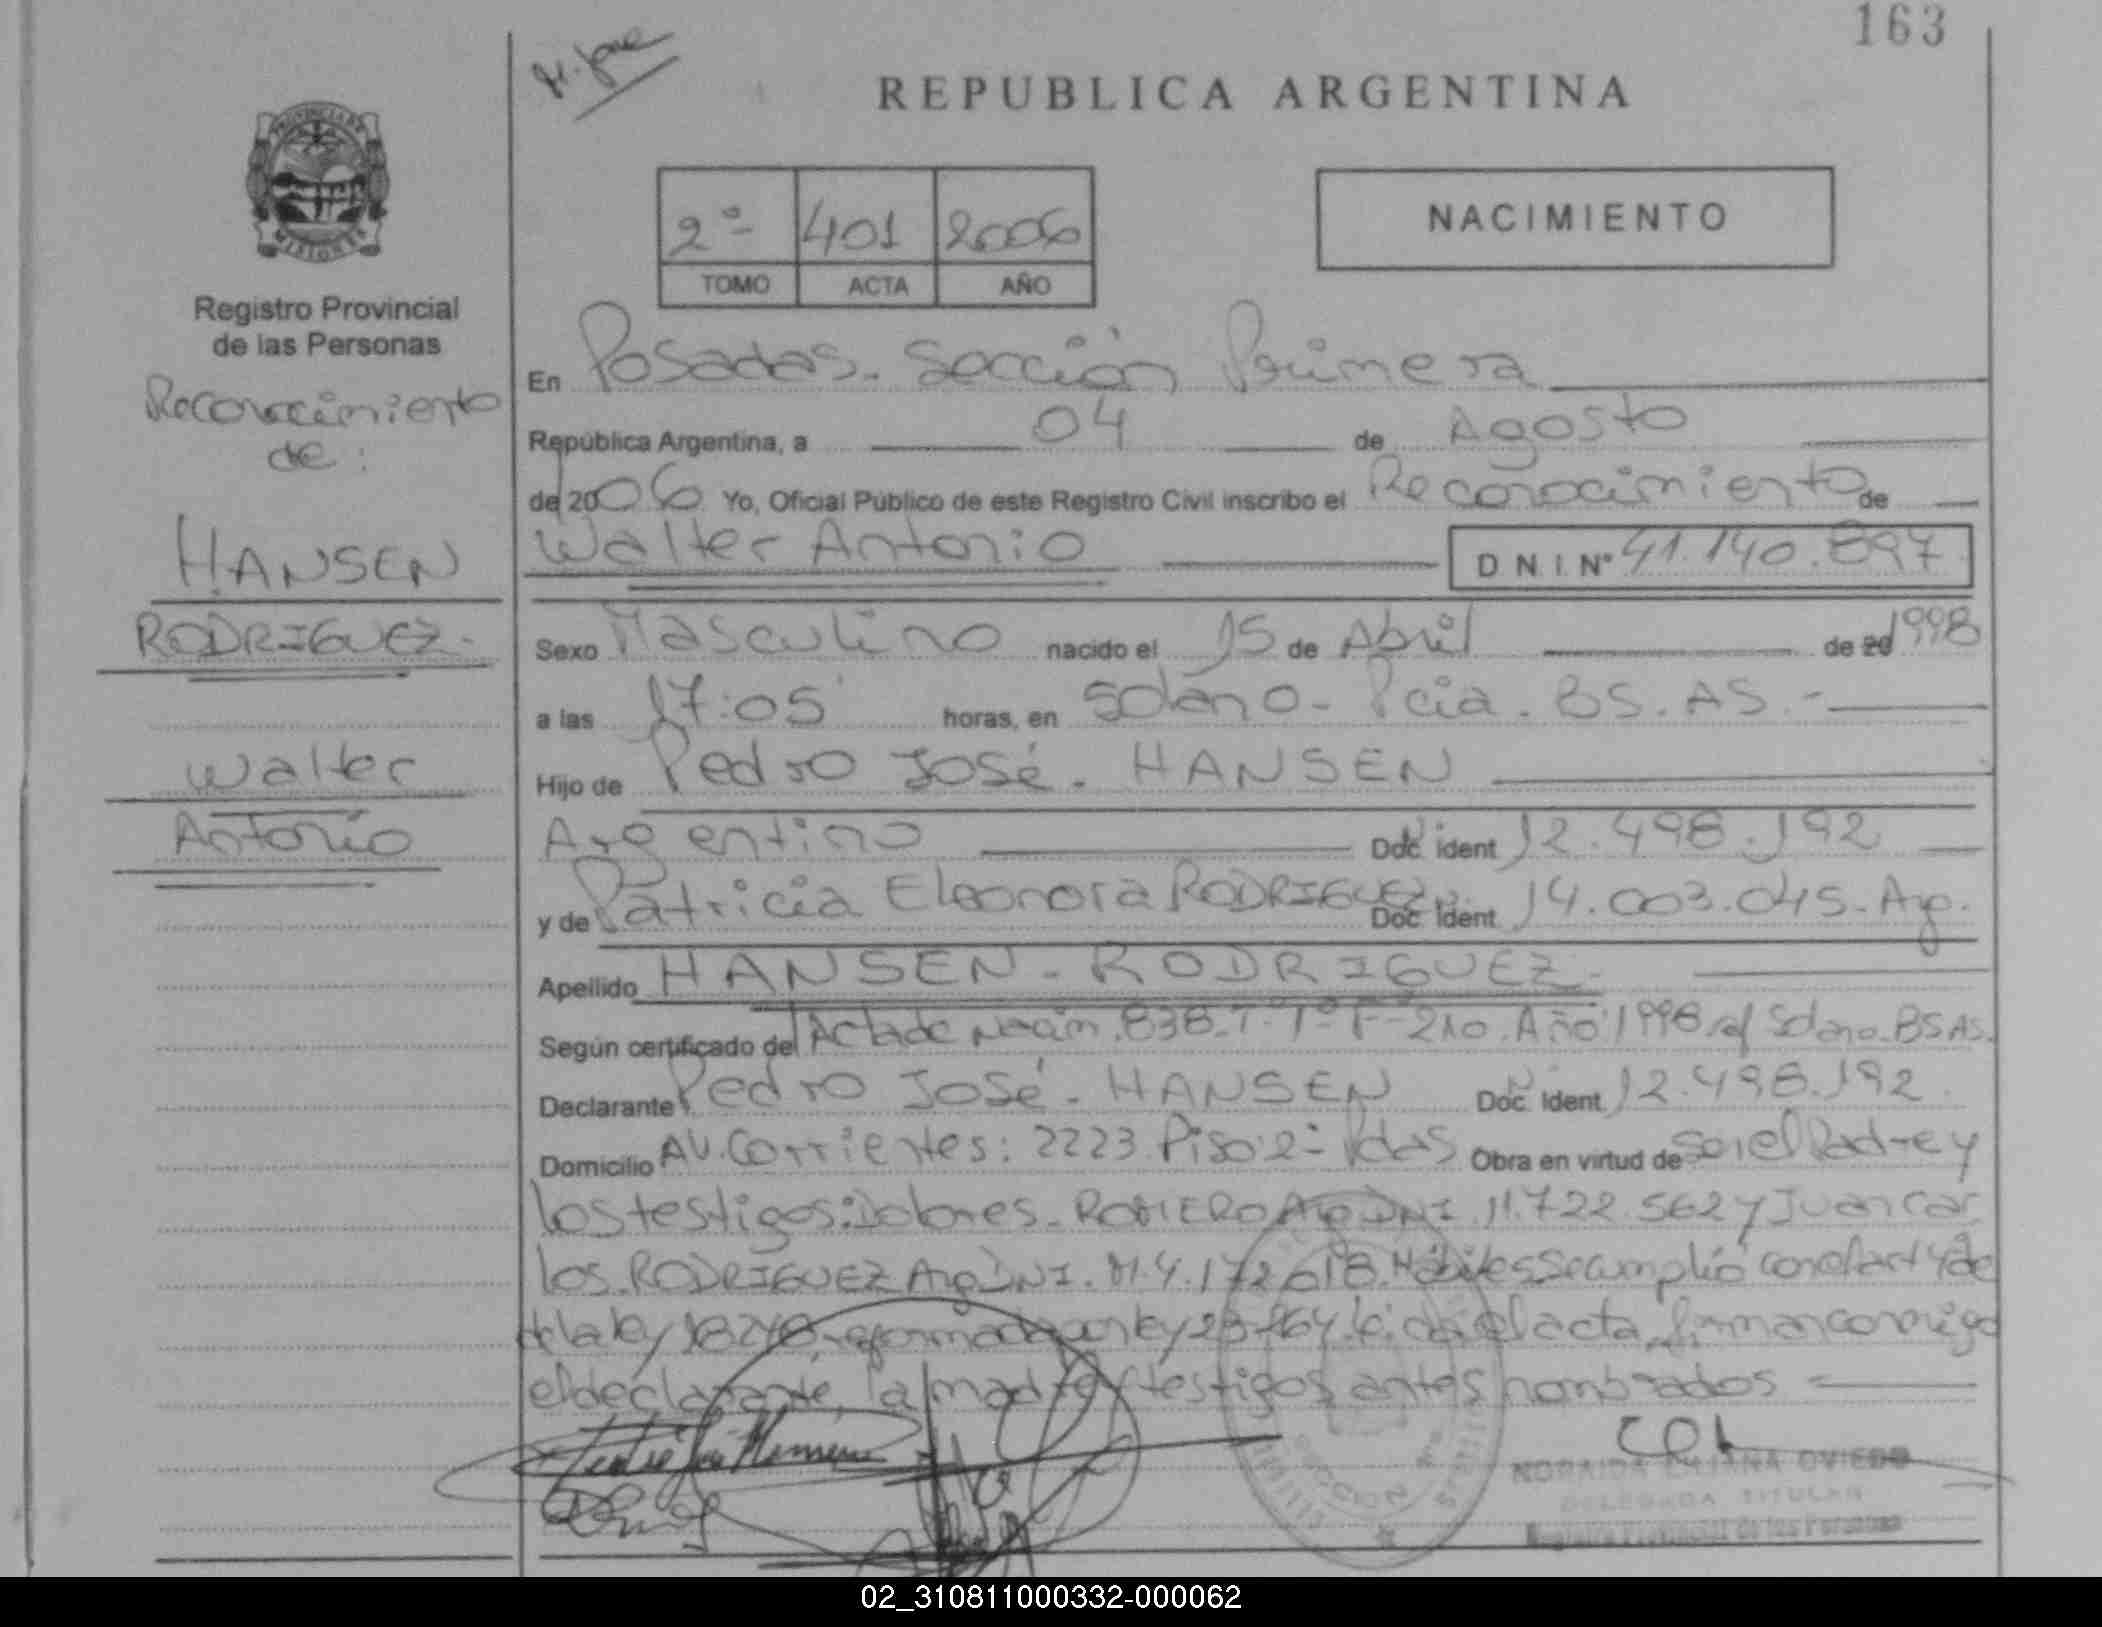 163
M. Jose
REPUBLICA ARGENTINA
PROVINCIA DE
MISIONES
2º 401 2006
TOMO ACTA AÑO
NACIMIENTO
Registro Provincial
de las Personas
Reconocimiento
de:
HANSEN
RODRIGUEZ.
Walter
Antonio
En Posadas. Sección Primera
República Argentina, a 04 de Agosto
de 2006 Yo, Oficial Público de este Registro Civil inscribo el Reconocimiento de
Walter Antonio D N. I. Nº 41.140.897
Sexo Masculino nacido el 15 de Abril de 20 1998
a las 17:05' horas, en Solano - Pcia. BS. AS. -
Hijo de Pedro José. HANSEN
Argentino Doc. ident 12.498.192
y de Patricia Eleonora RODRIGUEZ. Doc. Ident. 14.003.045. Arg.
Apellido HANSEN - RODRIGUEZ.
Según certificado de Acta de Nacim. 838. T. 1º F- 210. Año 1998. Solano. BS AS.
Declarante Pedro José. HANSEN Doc. Ident. 12.498.192.
Domicilio AV. Corrientes: 2223 Piso: 2- Pdas Obra en virtud de Ser el Padre y
los testigos: Dolores. ROMERO Arg DNI. 11.722.562 y Juan Car
los. RODRIGUEZ Arg DNI. M. 4.172.618. Hábiles Se cumplió con el art 4 de
de la ley 18248, reformada por ley 23 acta, firman conmigo
el declarante, la madre y testigos antes nombrados
NORAIDA LILIANA OVIEDO
DELEGADA TITULAR
Registro Provincial de las Personas
02_310811000332-000062